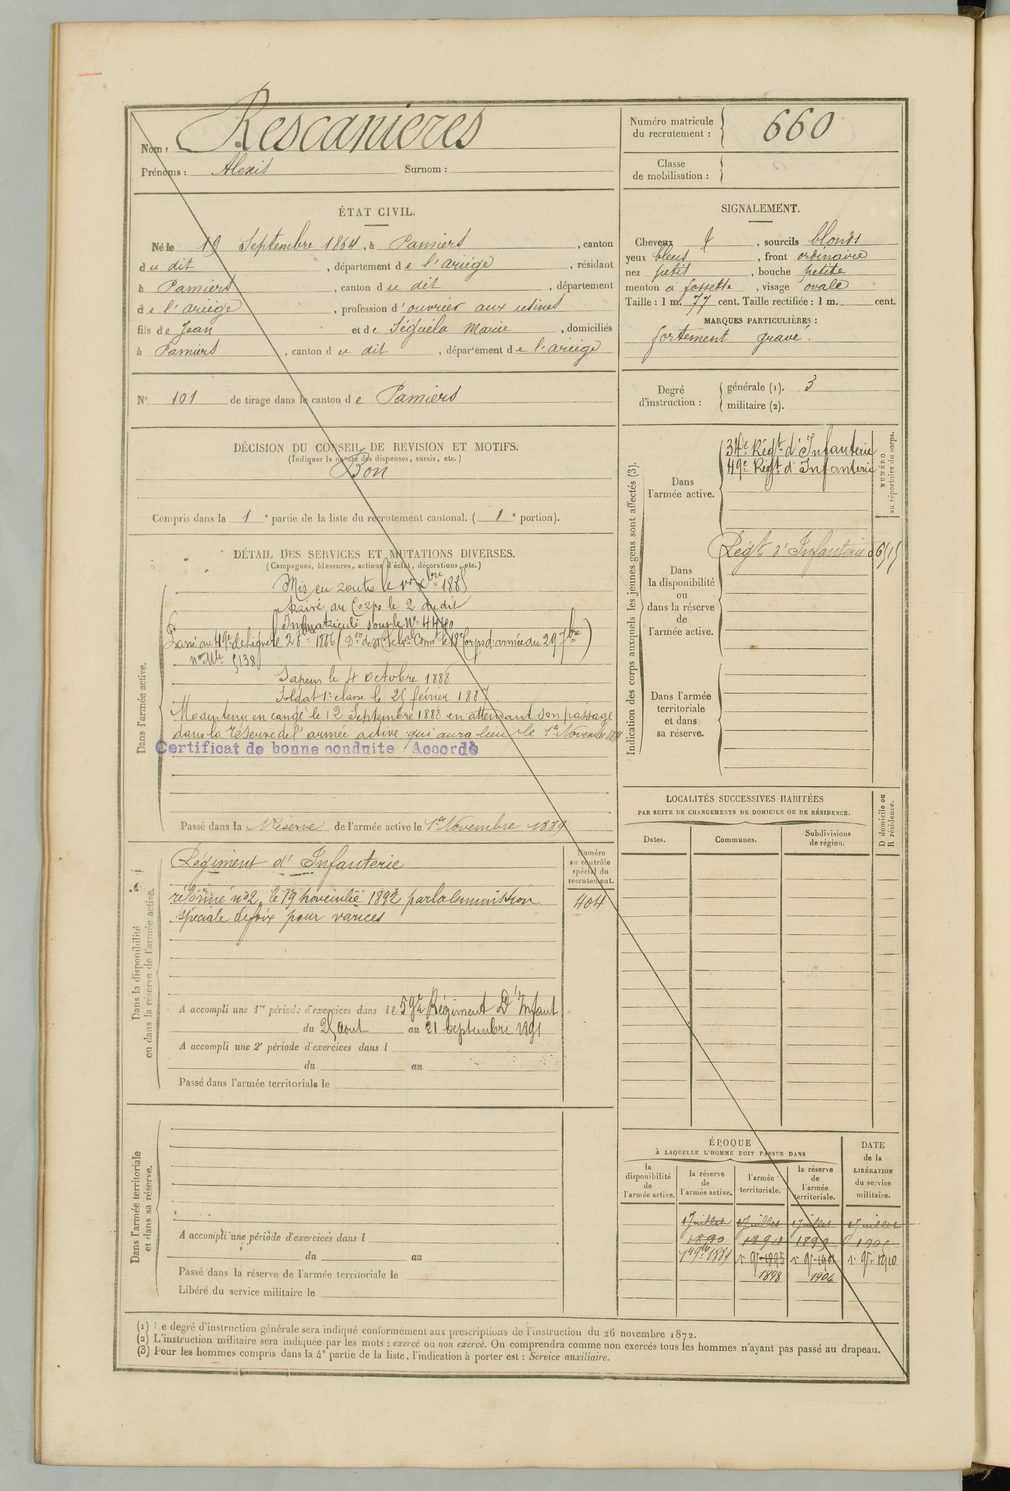 Nom : Rescanières
Prénoms : Alexis Surnom :
Numéro matricule du recrutement : 660
Classe de mobilisation :
ÉTAT CIVIL.
Né le 19 Septembre 1864, à Pamiers, canton
du dit, département de l'ariège, résidant
à Pamiers, canton du dit, département
de l'ariège, profession d'ouvrier aux usines
fils de Jean et de Séguéla Marie, domiciliés
à Pamiers, canton du dit, département de l'ariège
N° 101 de tirage dans le canton de Pamiers
DÉCISION DU CONSEIL DE REVISION ET MOTIFS.
(Indiquer la nature des dispenses, sursis, etc.)
Bon
Compris dans la 1e partie de la liste du recrutement cantonal. (1e portion).
DÉTAIL DES SERVICES ET MUTATIONS DIVERSES.
(Campagnes, blessures, actions d'éclat, décorations, etc.)
Dans l'armée active.
Mis en route le 1er Xbre 1885
Arrivé au Corps le 2 du dit
Immatriculé sous le N° 4460
Passé au 49e de ligne le 28
n° Mle 5138
Sapeur le 4 octobre 1888
Soldat 1e classe le 25 février 1887
Maintenu en congé le 12 Septembre 1888 en attendant son passage
dans la réserve de l'armée active qui aura lieu le 1er Novembre
Certificat de bonne conduite Accordé
Passé dans la Réserve de l'armée active le 1er Novembre 1889
Dans la disponibilité ou dans la réserve de l'armée active.
Numéro au contrôle spécial du recrutement.
404
Régiment d'Infanterie
réformé n° 2, le 19 novembre 1892 par la commission
spéciale de foix pour varices
A accompli une 1re période d'exercices dans le 59e Régiment D'Infant
du 25 aout au 21 septembre 1891
A accompli une 2e période d'exercices dans l
du au
Passé dans l'armée territoriale le
Dans l'armée territoriale et dans sa réserve.
A accompli une période d'exercices dans l
du au
Passé dans la réserve de l'armée territoriale le
Libéré du service militaire le
SIGNALEMENT.
Cheveux &, sourcils blonds
yeux bleus, front ordinaire
nez petit, bouche petite
menton a fossette, visage ovale
Taille : 1 m. 77 cent. Taille rectifiée : 1 m. cent.
MARQUES PARTICULIÈRES :
fortement gravé.
Degré d'instruction : générale (1). 3
militaire (2).
Indication des corps auxquels les jeunes gens sont affectés (3).
NUMÉRO au répertoire du corps.
Dans l'armée active.
34e Régt d'Infanterie
49e Régt d'Infanterie
Dans la disponibilité ou dans la réserve de l'armée active.
Régt d'Infanterie
Dans l'armée territoriale et dans sa réserve.
LOCALITÉS SUCCESSIVES HABITÉES
PAR SUITE DE CHANGEMENTS DE DOMICILE OU DE RÉSIDENCE.
D domicile ou R résidence.
Dates. Communes. Subdivisions de région.
ÉPOQUE
À LAQUELLE L'HOMME DOIT PASSER DANS
DATE de la LIBÉRATION du service militaire.
la disponibilité de l'armée active.
la réserve de l'armée active.
l'armée territoriale.
la réserve de l'armée territoriale.
1 Juillet 1 Juillet 1 Juillet 1 Juillet
1890
1898 1904
(1) Le degré d'instruction générale sera indiqué conformément aux prescriptions de l'instruction du 26 novembre 1872.
(2) L'instruction militaire sera indiquée par les mots : exercé ou non exercé. On comprendra comme non exercés tous les hommes n'ayant pas passé au drapeau.
(3) Pour les hommes compris dans la 4e partie de la liste, l'indication à porter est : Service auxiliaire.